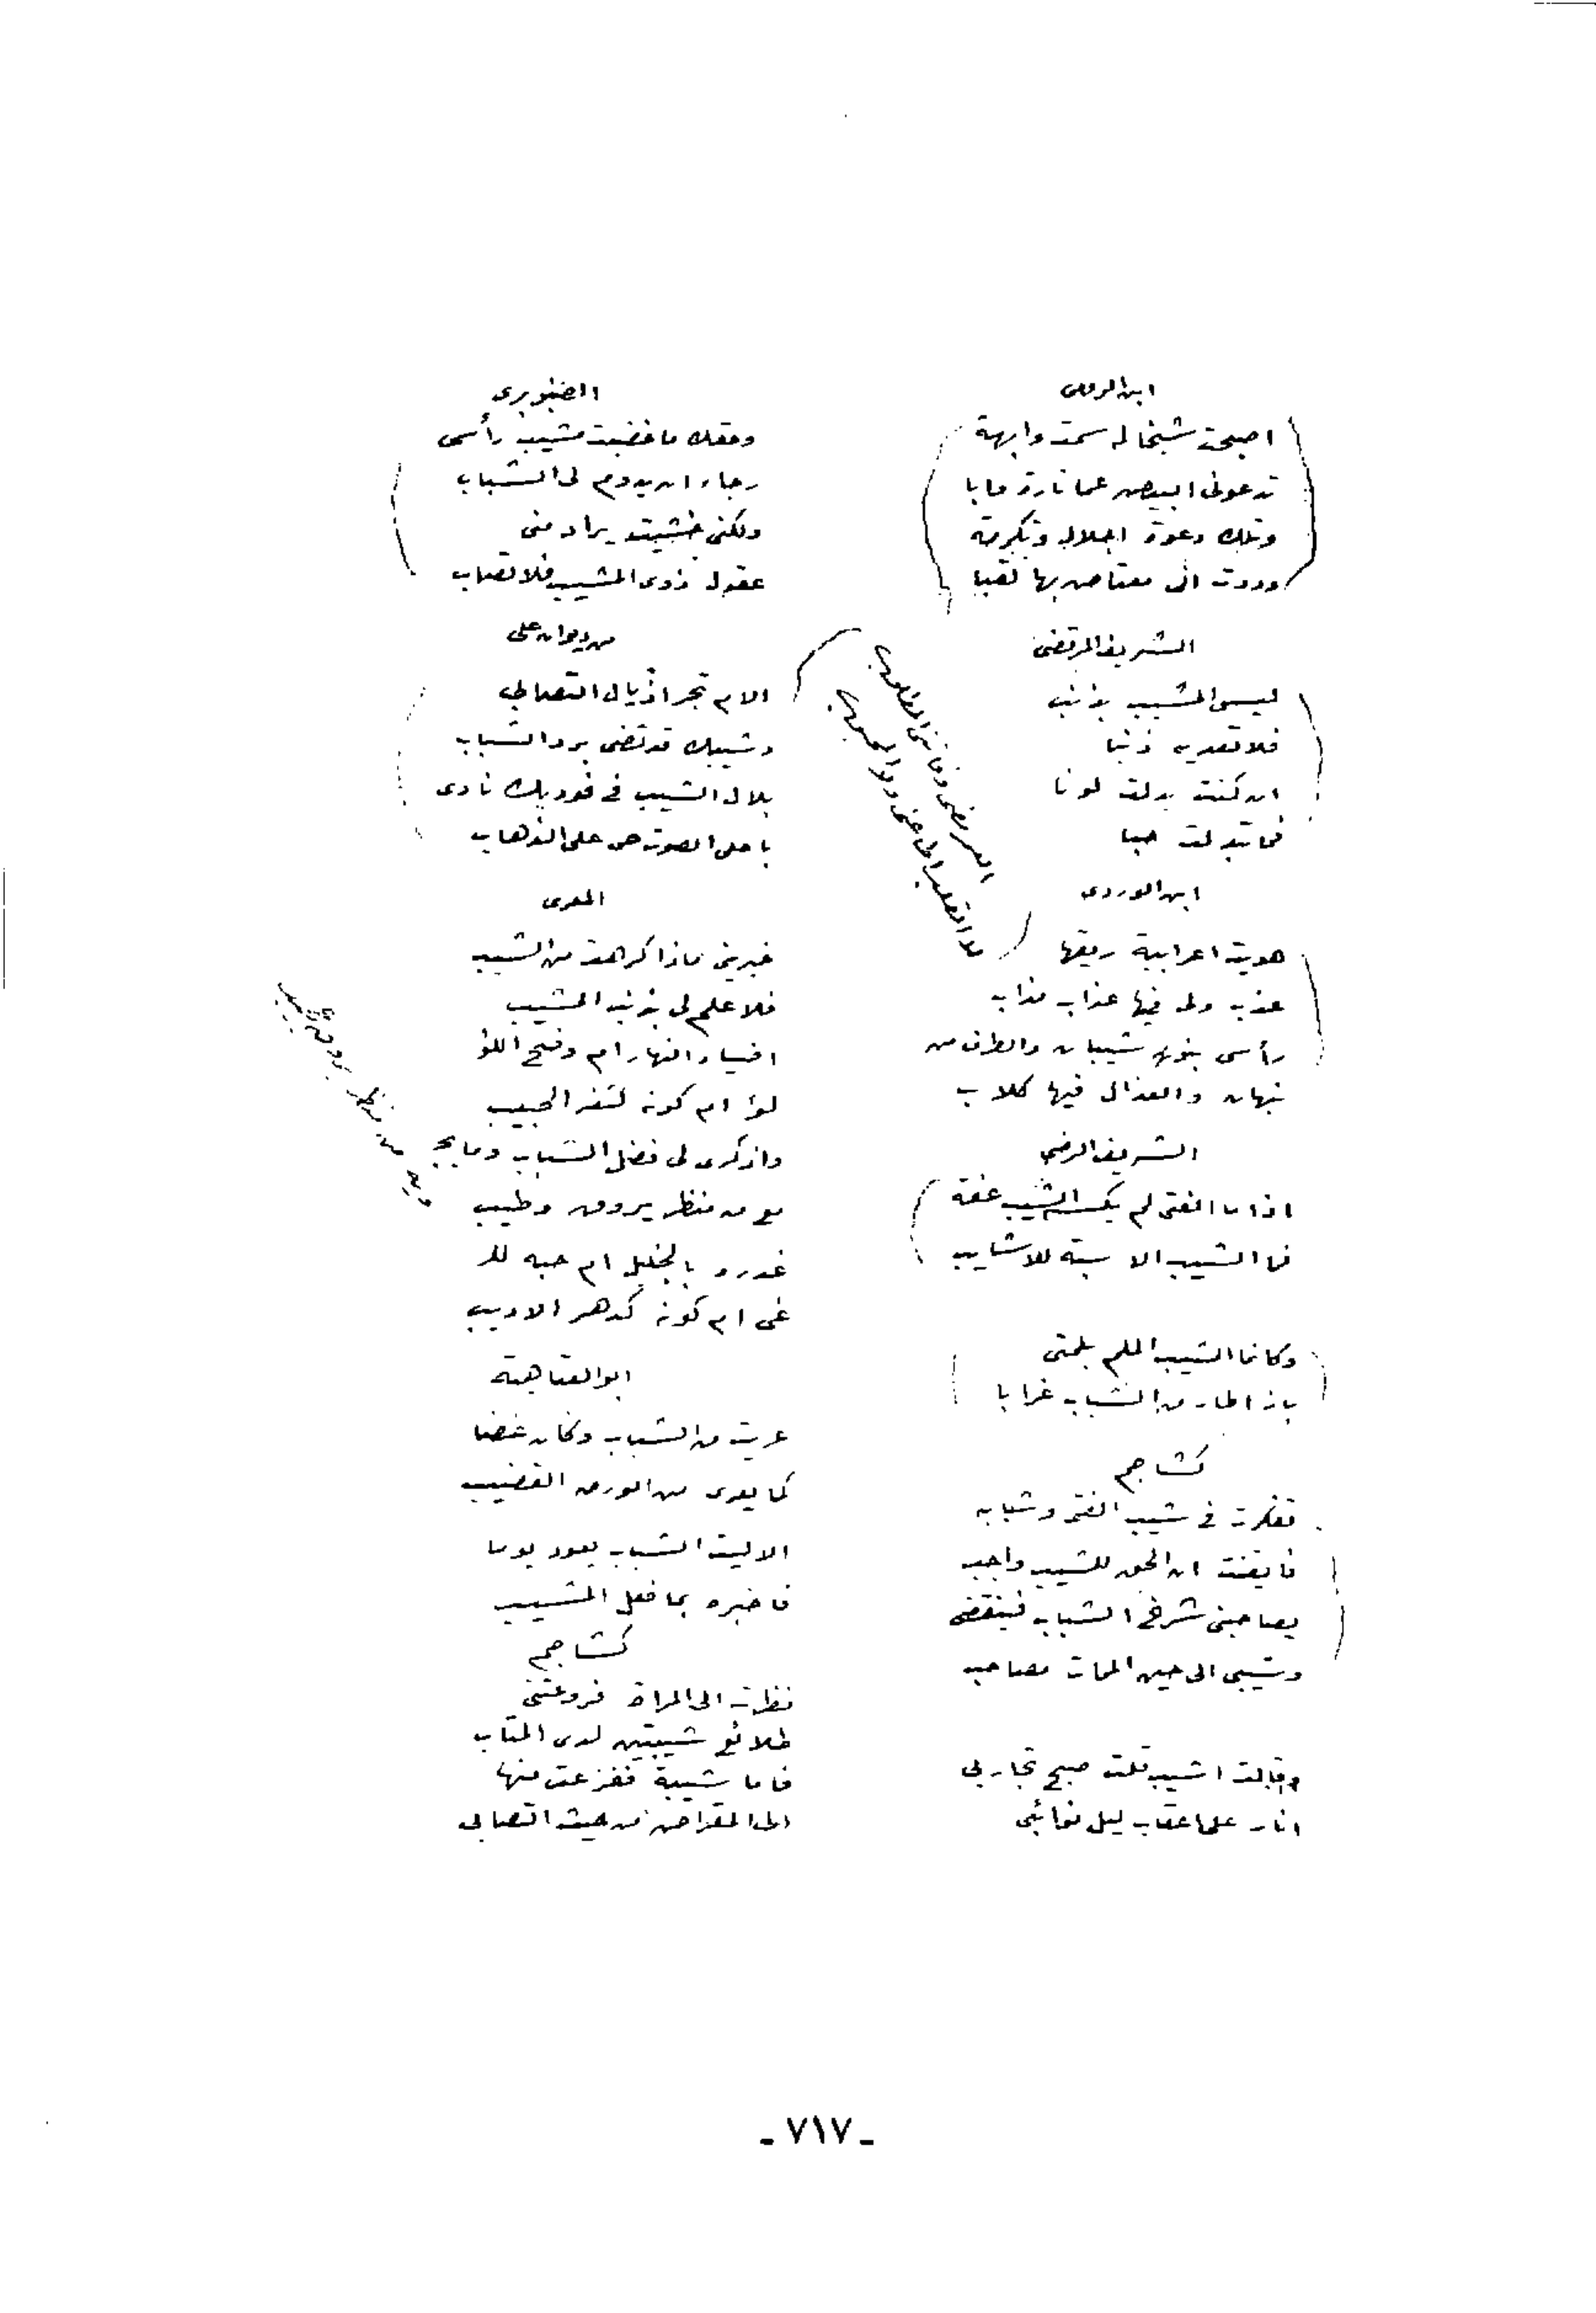 ابن الرومى
اصبحت شيخا له سمت وابهة
تدعونى البيض عما تارة وابا
وتلك دعوة اجلال وتكرمة
وددت انى معتاض بها لقبا
الشريف المرتضى
ليس المشيب بذنب
فلا تعديه ذنبا
ان كنت بدلت لونا
فما تبدلت حبا
ابن الوردى
هويت اعرابية ريقها
عذب ولى فيها عذاب مذاب
رأسى بنو شيبان والطرف من
نبهان والعذال فيها كلاب
الشريف الرضى
اذا ما الفتى لم يكسه الشيب عفة
فما الشيب الا سبة للاشايب
وكانما الشيب الملم بلمتى
باز اطار من الشباب غرابا
كشاجم
تفكرت فى شيب الفتى وشبابه
فايقنت ان الحق للشيب واجب
يصاحبنى شرخ الشباب فينقضى
وشيبى الى حين الممات مصاحب
وقالت اشيب قلت صبح تجاربى
انار على اعقاب ليل نوائبى
الصنوبرى
وحقك ما خضبت مشيب رأسى
رجاء ان يدوم لى الشباب
ولكنى خشيت يراد منى
عقول ذوى المشيب فلا تصاب
من ديوان على
الام تجر اذيال التصابى
وشيبك قد نضى برد الشباب
بلال الشيب فى فوديك نادى
باعلى الصوت حى على الذهاب
المعرى
خبرينى ماذا كرهت من الشيب
فلا علم لى بذنب المشيب
اضياء النهار ام وضح اللؤ
لؤ ام كونه كثغر الحبيب
واذكرى لى فضل الشباب وما يج
مع من منظر يروق وطيب
غدره بالخليل ام حبه للـ
غى ام كونه كدهر الاديب
ابو العتاهية
عريت من الشباب وكان غضا
كما يعرى من الورق القضيب
الا ليت الشباب يعود يوما
فاخبره بما فعل المشيب
كشاجم
نظرت الى المراة فروعتنى
طلائع شيبتين لدى المتاب
فاما شيبة ففزعت منها
الى المقراض من حيث التصابى
- ٧١٧ -